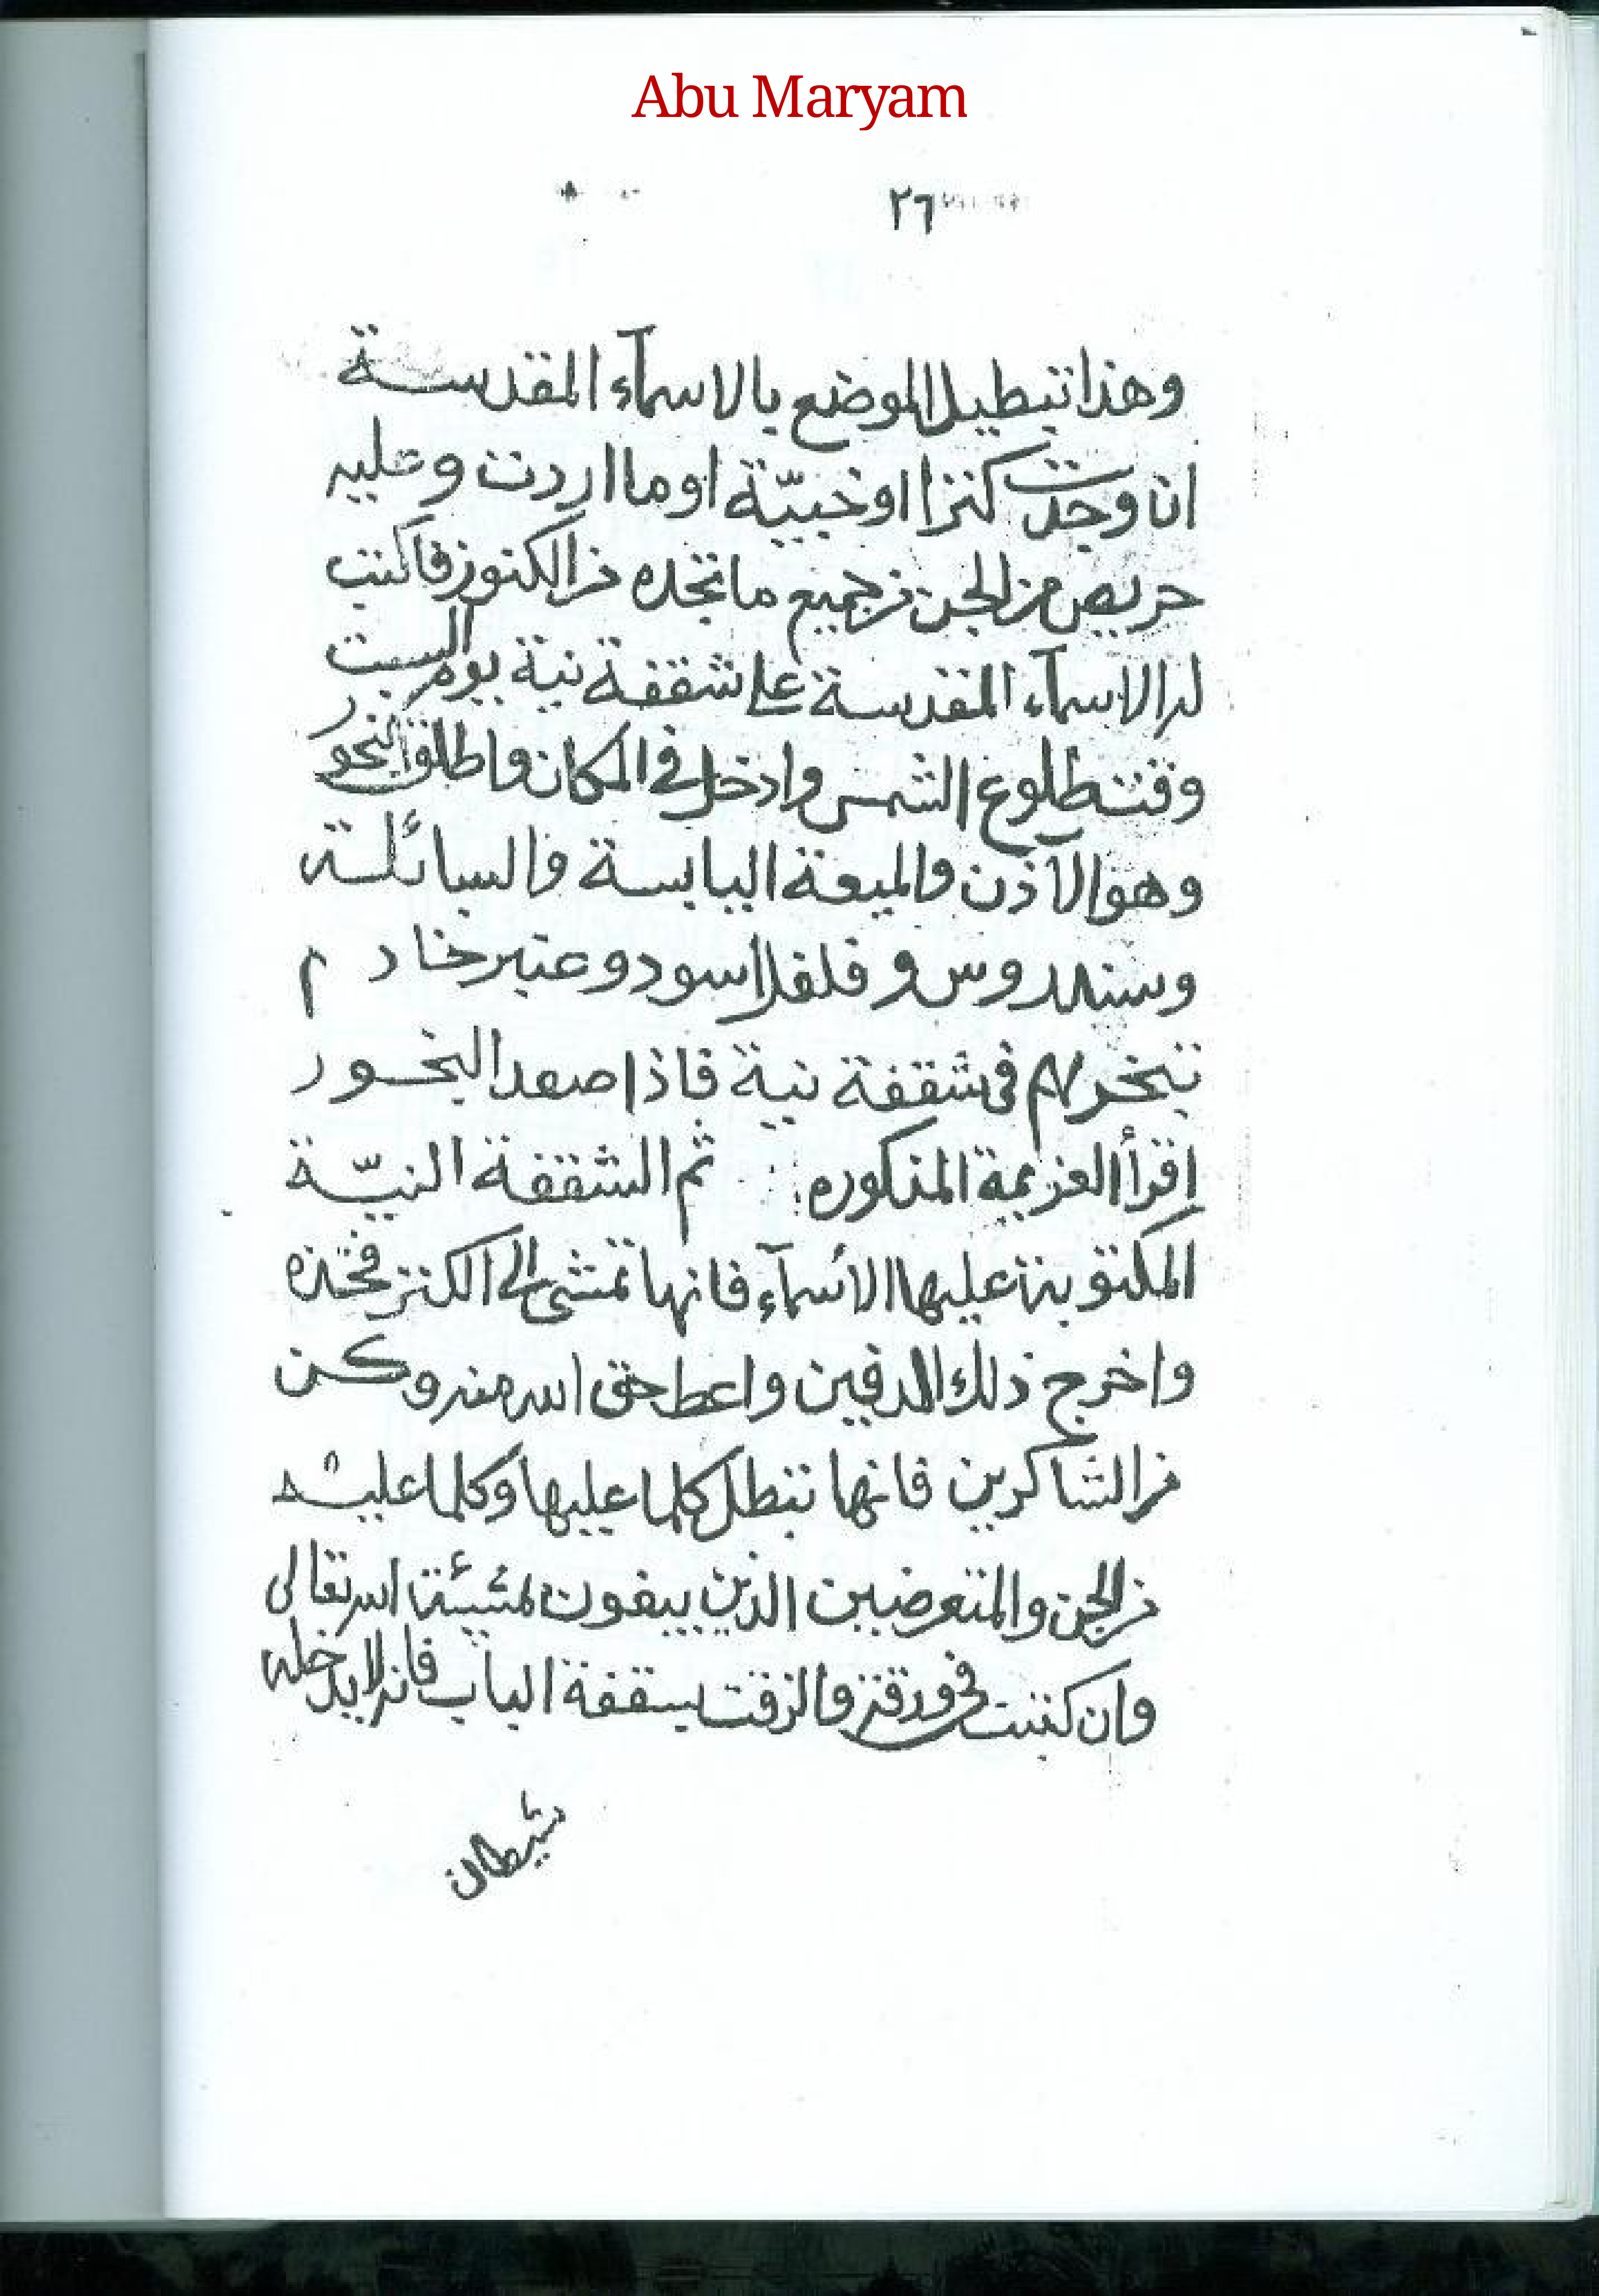 Abu Maryam
٢٦
وهذا تبطيل الموضع بالاسمآء المقدسة
ان وجدت كنزا او خبيّة او ما اردت وعليه
حريص من الجن من جميع ما تجده من الكنوز فاكتب
له الاسمآء المقدسة على شقفة نية يوم السبت
وقت طلوع الشمس وادخل في المكان واطلق البخور
وهو الآذن والميعة اليابسة والسائلة
وسندروس وفلفل اسود وعنبر خادم
تبخر لهم في شقفة نية فاذا صعد البخور
اقرأ العزيمة المذكوره ثم الشقفة النيّة
المكتوبة عليها الأسمآء فانها تمشى الى الكنز فخذه
واخرج ذلك الدفين واعط حق الله منه وكن
من الشاكرين فانها تبطل كلما عليها وكلما عليه
من الجن والمتعرضين الذين يبغون لمشيئة الله تعالى
وان كتبت في ورقة والزقت بسقفة الباب فانه لا يدخله
شيطان